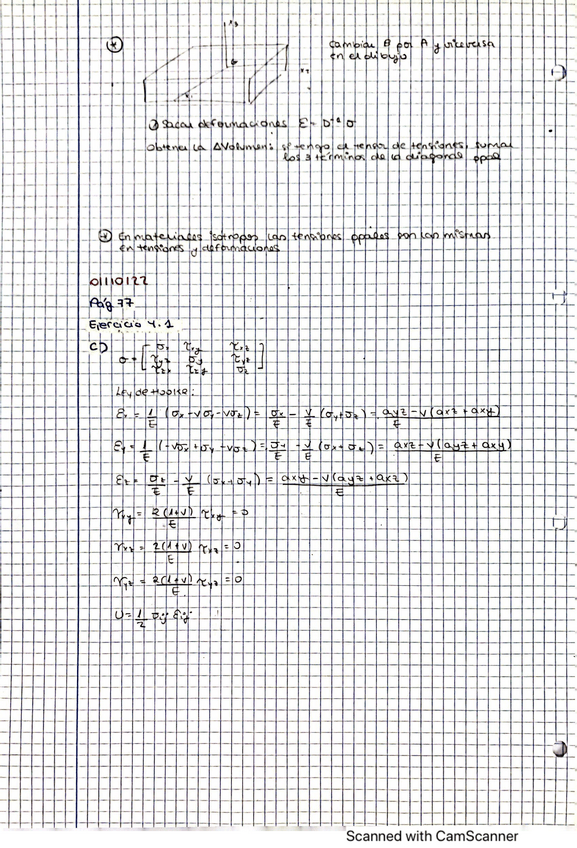 Cambiar B por A y viceversa
en el dibujo
Sacar deformaciones ε = D⁻¹ σ
Obtener la ΔVolumen: si tengo el tensor de tensiones, sumar
los 3 términos de la diagonal ppal
En materiales isótropos las tensiones ppales son las mismas
en tensiones y deformaciones
01/10/22
Pág 77
Ejercicio 4.1
C) σ = [ σx τxy τxz
τyz σy τyz
τzx τzy σz ]
Ley de Hooke:
εx = 1/E (σx - νσy - νσz) = σx/E - ν/E (σy + σz) = (ayz - ν(axz + axy))/E
εy = 1/E (-νσx + σy - νσz) = σy/E - ν/E (σx + σz) = (axz - ν(ayz + axy))/E
εz = σz/E - ν/E (σx + σy) = (axy - ν(ayz + axz))/E
γxy = 2(1+ν)/E τxy = 0
γxz = 2(1+ν)/E τxz = 0
γyz = 2(1+ν)/E τyz = 0
U = 1/2 σij εij
Scanned with CamScanner